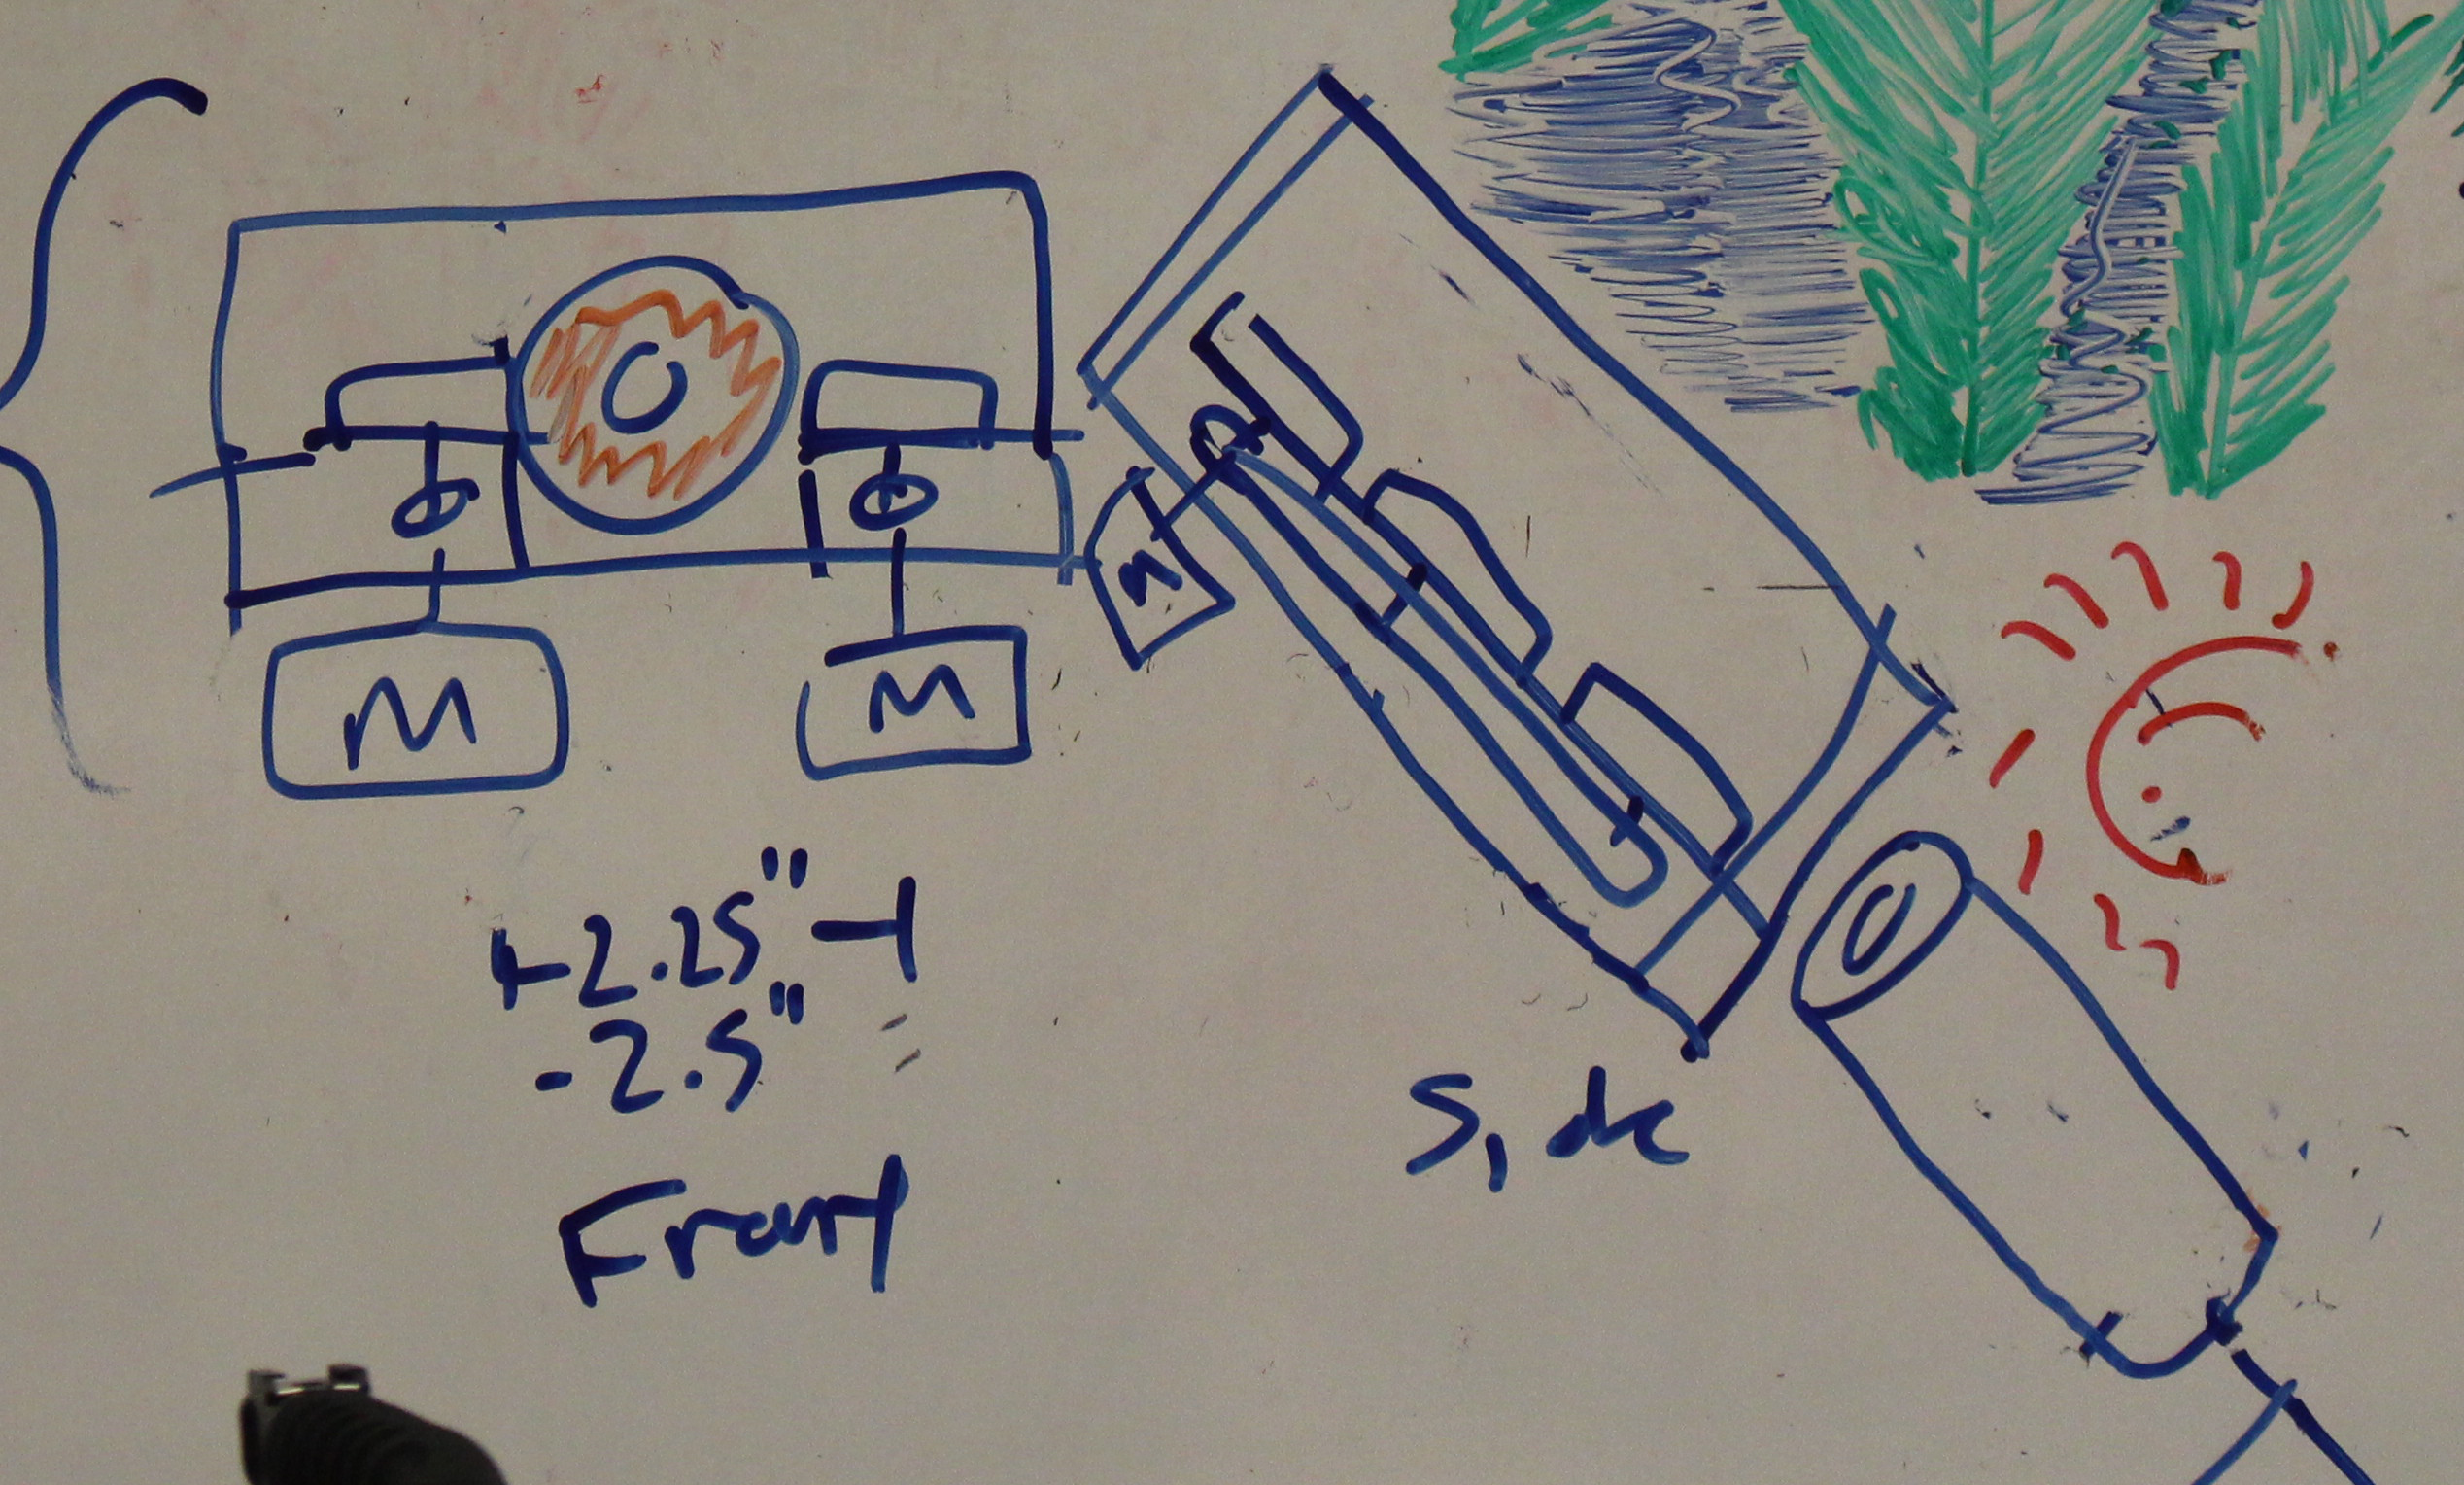 M M
M
+2.25"
-2.5"
Front
Side